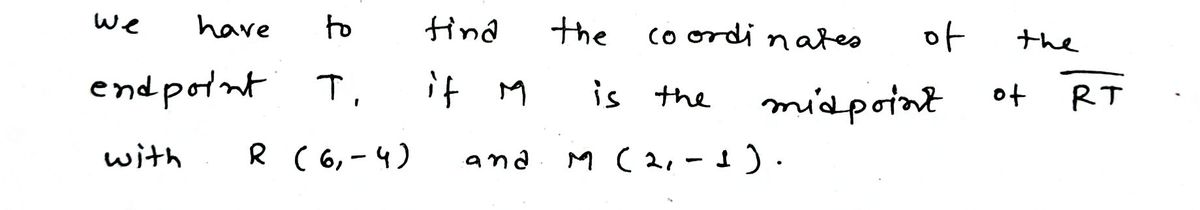 we have to find the coordinates of the
endpoint T, if M is the midpoint of RT
with R (6,-4) and M (2,-1).